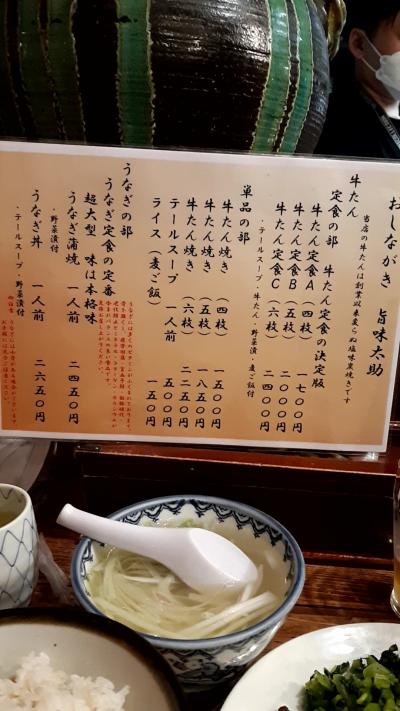 おしながき 旨味太助
当店の牛たんは創業以来変らぬ塩味炭焼きです
牛たん
定食の部 牛たん定食の決定版
牛たん定食A（四枚） 一七〇〇円
牛たん定食B（五枚） 二〇〇〇円
牛たん定食C（六枚） 二四〇〇円
・テールスープ・牛たん・野菜漬・麦ご飯付
単品の部
牛たん焼き（四枚） 一五〇〇円
牛たん焼き（五枚） 一八五〇円
牛たん焼き（六枚） 二二五〇円
テールスープ 一人前 五〇〇円
ライス（麦ご飯） 一五〇円
うなぎの部
うなぎ定食の定番
超大型 味は本格味
うなぎ蒲焼 一人前 二四五〇円
・野菜漬付
うなぎ丼 一人前 二六五〇円
・テールスープ・野菜漬付